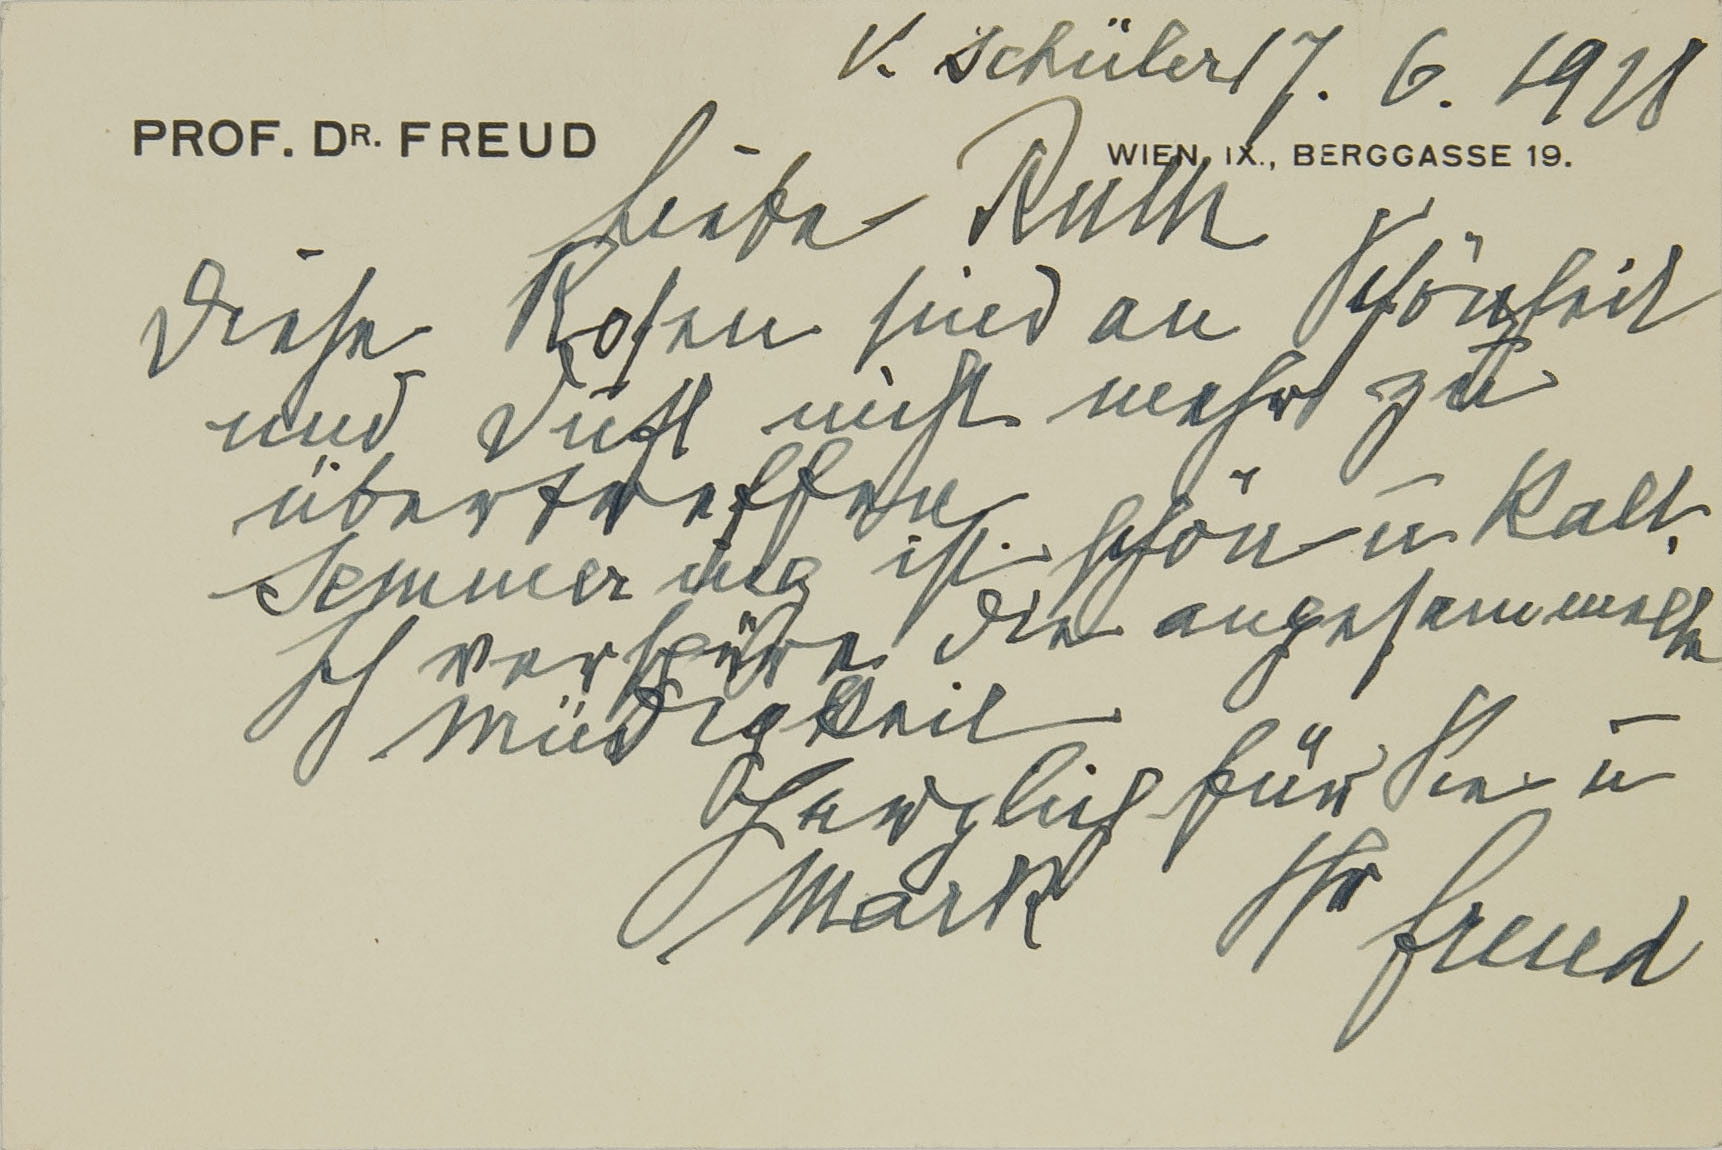 V. Schüler 17. 6. 1928
PROF. DR. FREUD
WIEN, IX., BERGGASSE 19.
Liebe Ruth
Diese Rosen sind an Schönheit
und Duft nicht mehr zu
übertreffen
Semmering ist schön u kalt,
Ich verspüre die angesammelte
Müdigkeit
Herzlich für Sie u
Mark Ihr Freud